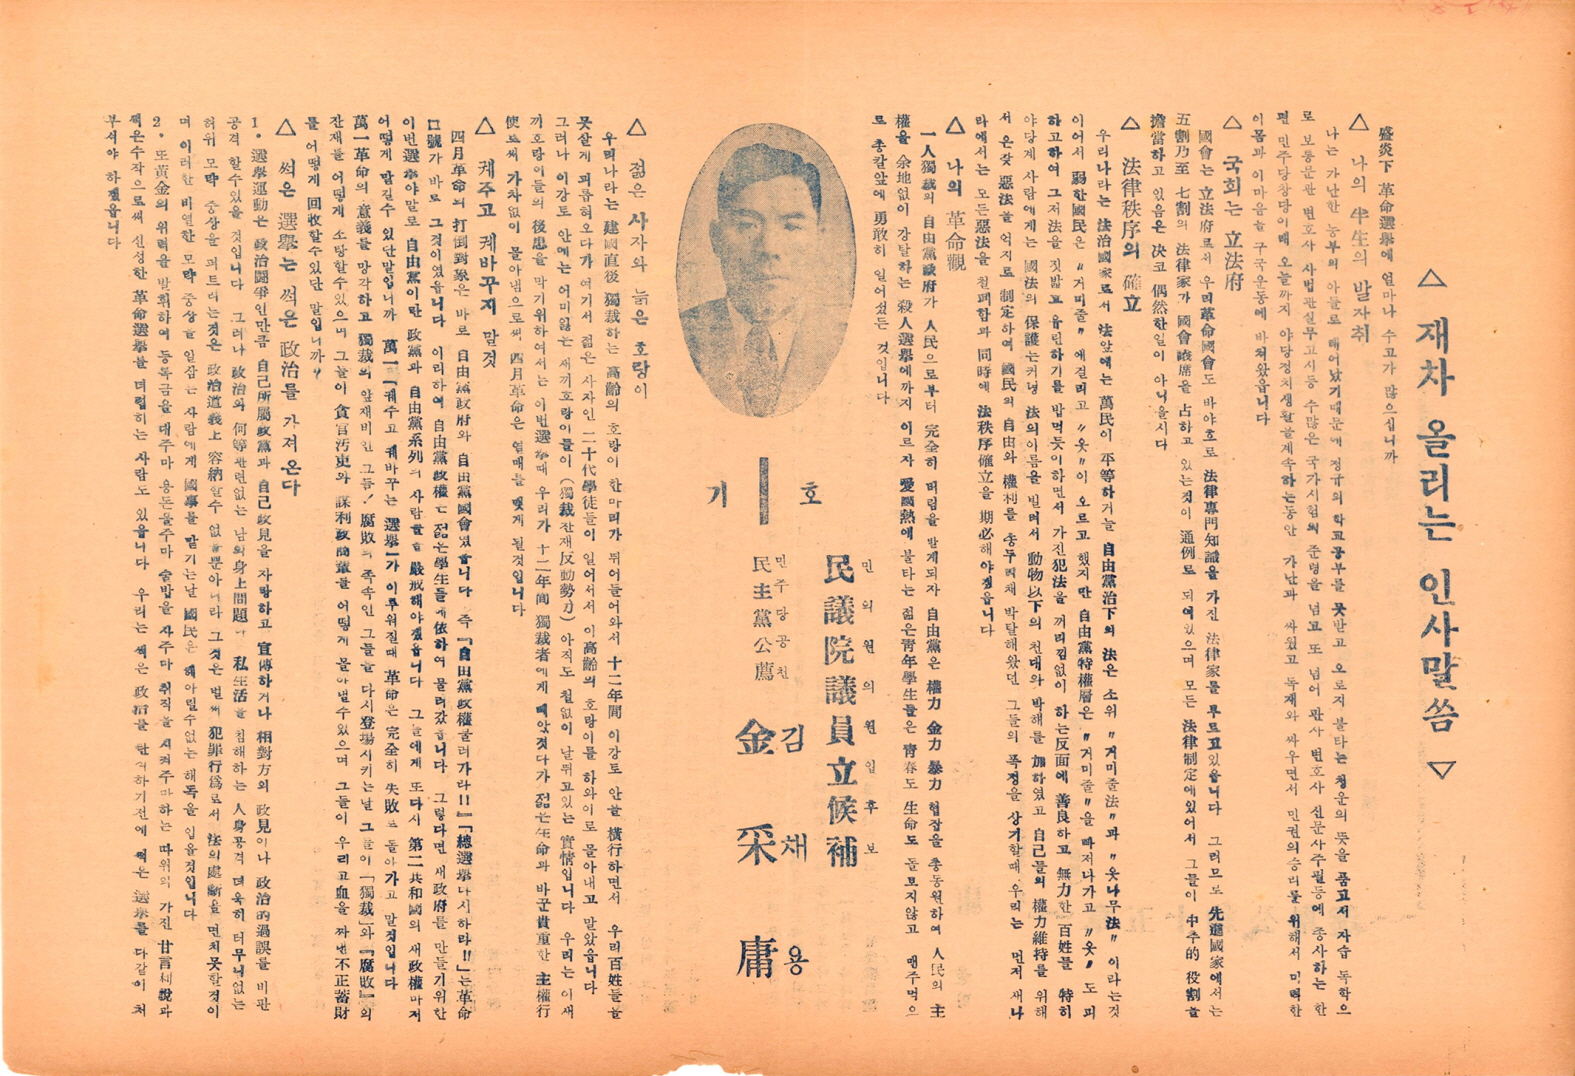 △ 재차 올리는 인사말씀 ▽
盛炎下 革命選擧에 얼마나 수고가 많으십니까
△ 나의 半生의 발자취
나는 가난한 농부의 아들로 태어났기때문에 정규의 학교공부를 못받고 오로지 불타는 청운의 뜻을 품고서 자습 독학으
로 보통문관 변호사 사법관실무 고시등 수많은 국가시험의 준령을 넘고 또 넘어 판사 변호사 신문사주필등에 종사하는 한
편 민주당창당이래 오늘까지 야당정치생활을계속하는동안 가난과 싸웠고 독재와 싸우면서 민권의승리를위해서 미력한
이몸과 이마음을 구국운동에 바쳐왔읍니다
△ 국회는 立法府
國會는 立法府로서 우리革命國會도 바야흐로 法律專門知識을 가진 法律家를 부르고있읍니다 그러므로 先進國家에서는
五割乃至 七割의 法律家가 國會議席을 占하고 있는것이 通例로 되여있으며 모든 法律制定에있어서 그들이 中추的 役割을
擔當하고 있음은 决코 偶然한일이 아니올시다
△ 法律秩序의 確立
우리나라는 法治國家로서 法앞에는 萬民이 平等하거늘 自由黨治下의 法은 소위 〃거미줄法〃과 〃옷나무法〃이라는것
이어서 弱한國民은 〃거미줄〃에걸리고 〃옷〃이 오르고 했지만 自由黨特權層은 〃거미줄〃을 빠저나가고 〃옷〃도 피
하고하여 그저法을 짓밟고 유린하기를 밥먹듯이하면서 가진犯法을 꺼리낌없이 하는反面에 善良하고 無力한 百姓을 特히
야당계 사람에게는 國法의 保護는커녕 法의이름을 빌려서 動物以下의 천대와 박해를 加하였고 自己들의 權力維持를 위해
서 온갖 惡法을 억지로 制定하여 國民의 自由와 權利를 송두리채 박탈해왔던 그들의 폭정을 상기할때 우리는 먼저 새나
라에서는 모든惡法을 철폐함과 同時에 法秩序確立을 期必해야겠읍니다
△ 나의 革命觀
一人獨裁의 自由黨政府가 人民으로부터 完全히 버림을 받게되자 自由黨은 權力 金力 暴力 협잡을 총동원하여 人民의 主
權을 余地없이 강탈하는 殺人選擧에까지 이르자 愛國熱에 불타는 젊은靑年學生들은 靑春도 生命도 돌보지않고 맨주먹으
로 총칼앞에 勇敢히 일어섰든 것입니다
호 | 기
민의원의원입후보
民議院議員立候補
민주당공천
民主黨公薦
김채용
金采庸
△ 젊은 사자와 늙은 호랑이
우리나라는 建國直後 獨裁하는 高齡의 호랑이 한마리가 뛰어들어와서 十二年間 이강토 안을 橫行하면서 우리百姓들을
못살게 괴롭혀오다가 여기서 젊은 사자인 二十代學徒들이 일어서서 이高齡의 호랑이를 하와이로 몰아내고 말았읍니다
그러나 이강토 안에는 어미잃은 새끼호랑이들이 (獨裁잔재反動勢力) 아직도 철없이 날뛰고있는 實情입니다 우리는 이새
끼호랑이들의 後患을 막기위하여서는 이번選擧때 우리가 十二年间 獨裁者에게 빼앗겼다가 젊은生命과 바꾼貴重한 主權行
使로써 가차없이 몰아냄으로써 四月革命은 열매를 맺게 될것입니다
△ 궤주고 궤바꾸지 말것
四月革命의 打倒對象은 바로 自由黨政府와 自由黨國會였읍니다 즉 『自由黨政權물러가라!!』『總選擧다시하라!!』는革命
口號가 바로 그것이였읍니다 이리하여 自由黨政權은 젊은學生들에依하여 물러갔읍니다 그렇다면 새政府를 만들기위한
이번選擧야말로 自由黨이란 政黨과 自由黨系列의 사람들을 嚴戒해야겠읍니다 그들에게 또다시 第二共和國의 새政權마저
어떻게 맡길수 있단말입니까 萬一 『궤주고 궤바꾸는 選擧』가 이루워질때 革命은 完全히 失敗로 돌아가고 말것입니다
萬一革命의 意義를 망각하고 獨裁의 앞재비인 그들! 腐敗의 족속인 그들을 다시登場시키는날 그들이 「獨裁」와 『腐敗』의
잔재를 어떻게 소탕할수있으며 그들이 貪官汚吏와 謀利政商輩를 어떻게 몰아낼수있으며 그들이 우리고血을 짜낸不正蓄財
를 어떻게 回收할수있단 말입니까〃
△ 썩은 選擧는 썩은 政治를 가져온다
1. 選擧運動은 政治鬪爭인만큼 自己所屬政黨과 自己政見을 자랑하고 宣傳하거나 相對方의 政見이나 政治的過誤를 비판
공격 할수있을 것입니다 그러나 政治와 何等관련없는 남의身上問題나 私生活을 침해하는 人身공격 더욱히 터무니없는
허위 모략 중상을 퍼트리는것은 政治道義上 容納할수 없을뿐아니라 그것은 벌써 犯罪行爲로서 法의處斷을 면치못할것이
며 이러한 비열한 모략 중상을 일삼는 사람에게 國事를 맡기는날 國民은 헤아릴수없는 해독을 입을것입니다
2. 또黃金의 위력을 발휘하여 등록금을대주마 용돈을주마 술밥을 사주마 취직을 시켜주마하는 따위의 가진 甘言利說과
썩은수작으로써 신성한 革命選擧를 더럽히는 사람도 있읍니다 우리는 썩은 政治를 한여하기전에 썩은 選擧를 다같이 처
부셔야 하겠읍니다